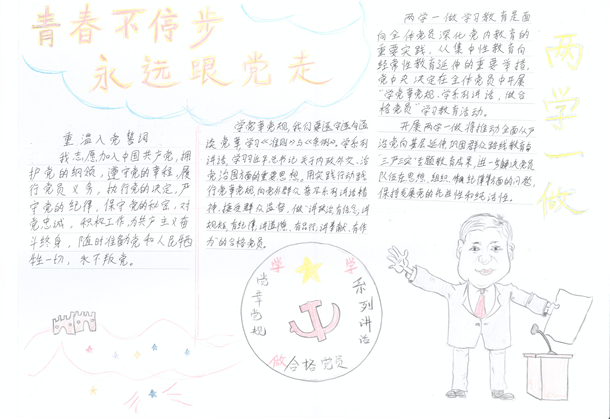 青春不停步
永远跟党走
重温入党誓词
我志愿加入中国共产党,拥
护党的纲领,遵守党的章程,履
行党员义务,执行党的决定,严
守党的纪律,保守党的秘密,对
党忠诚,积极工作,为共产主义奋
斗终身,随时准备为党和人民牺
牲一切,永不叛党。
学党章党规,我们要逐字逐句通
读党章,学习《准则》与《条例》。学系列
讲话,学习习近平总书记关于内政外交、治
党治国方面的重要思想。用实践行动践
行党章党规,向党外群众普及系列讲话精
神,接受群众监督,做"讲政治有信念,讲
规矩有纪律,讲道德、有品行,讲奉献、有作
为"的合格党员。
两学一做学习教育是面
向全体党员深化党内教育的
重要实践,从集中性教育向
经常性教育延伸的重要举措。
党中央决定在全体党员中开展
"学党章党规、学系列讲话,做合
格党员"学习教育活动。
开展两学一做将推动全面从严治
党向基层延伸,巩固群众路线教育和
"三严三实"专题教育成果,进一步解决党员
队伍在思想、组织、纪律等方面的问题,
保持发展党的先进性和纯洁性。
两学一做
学
党章党规
学
系列讲话
做合格党员